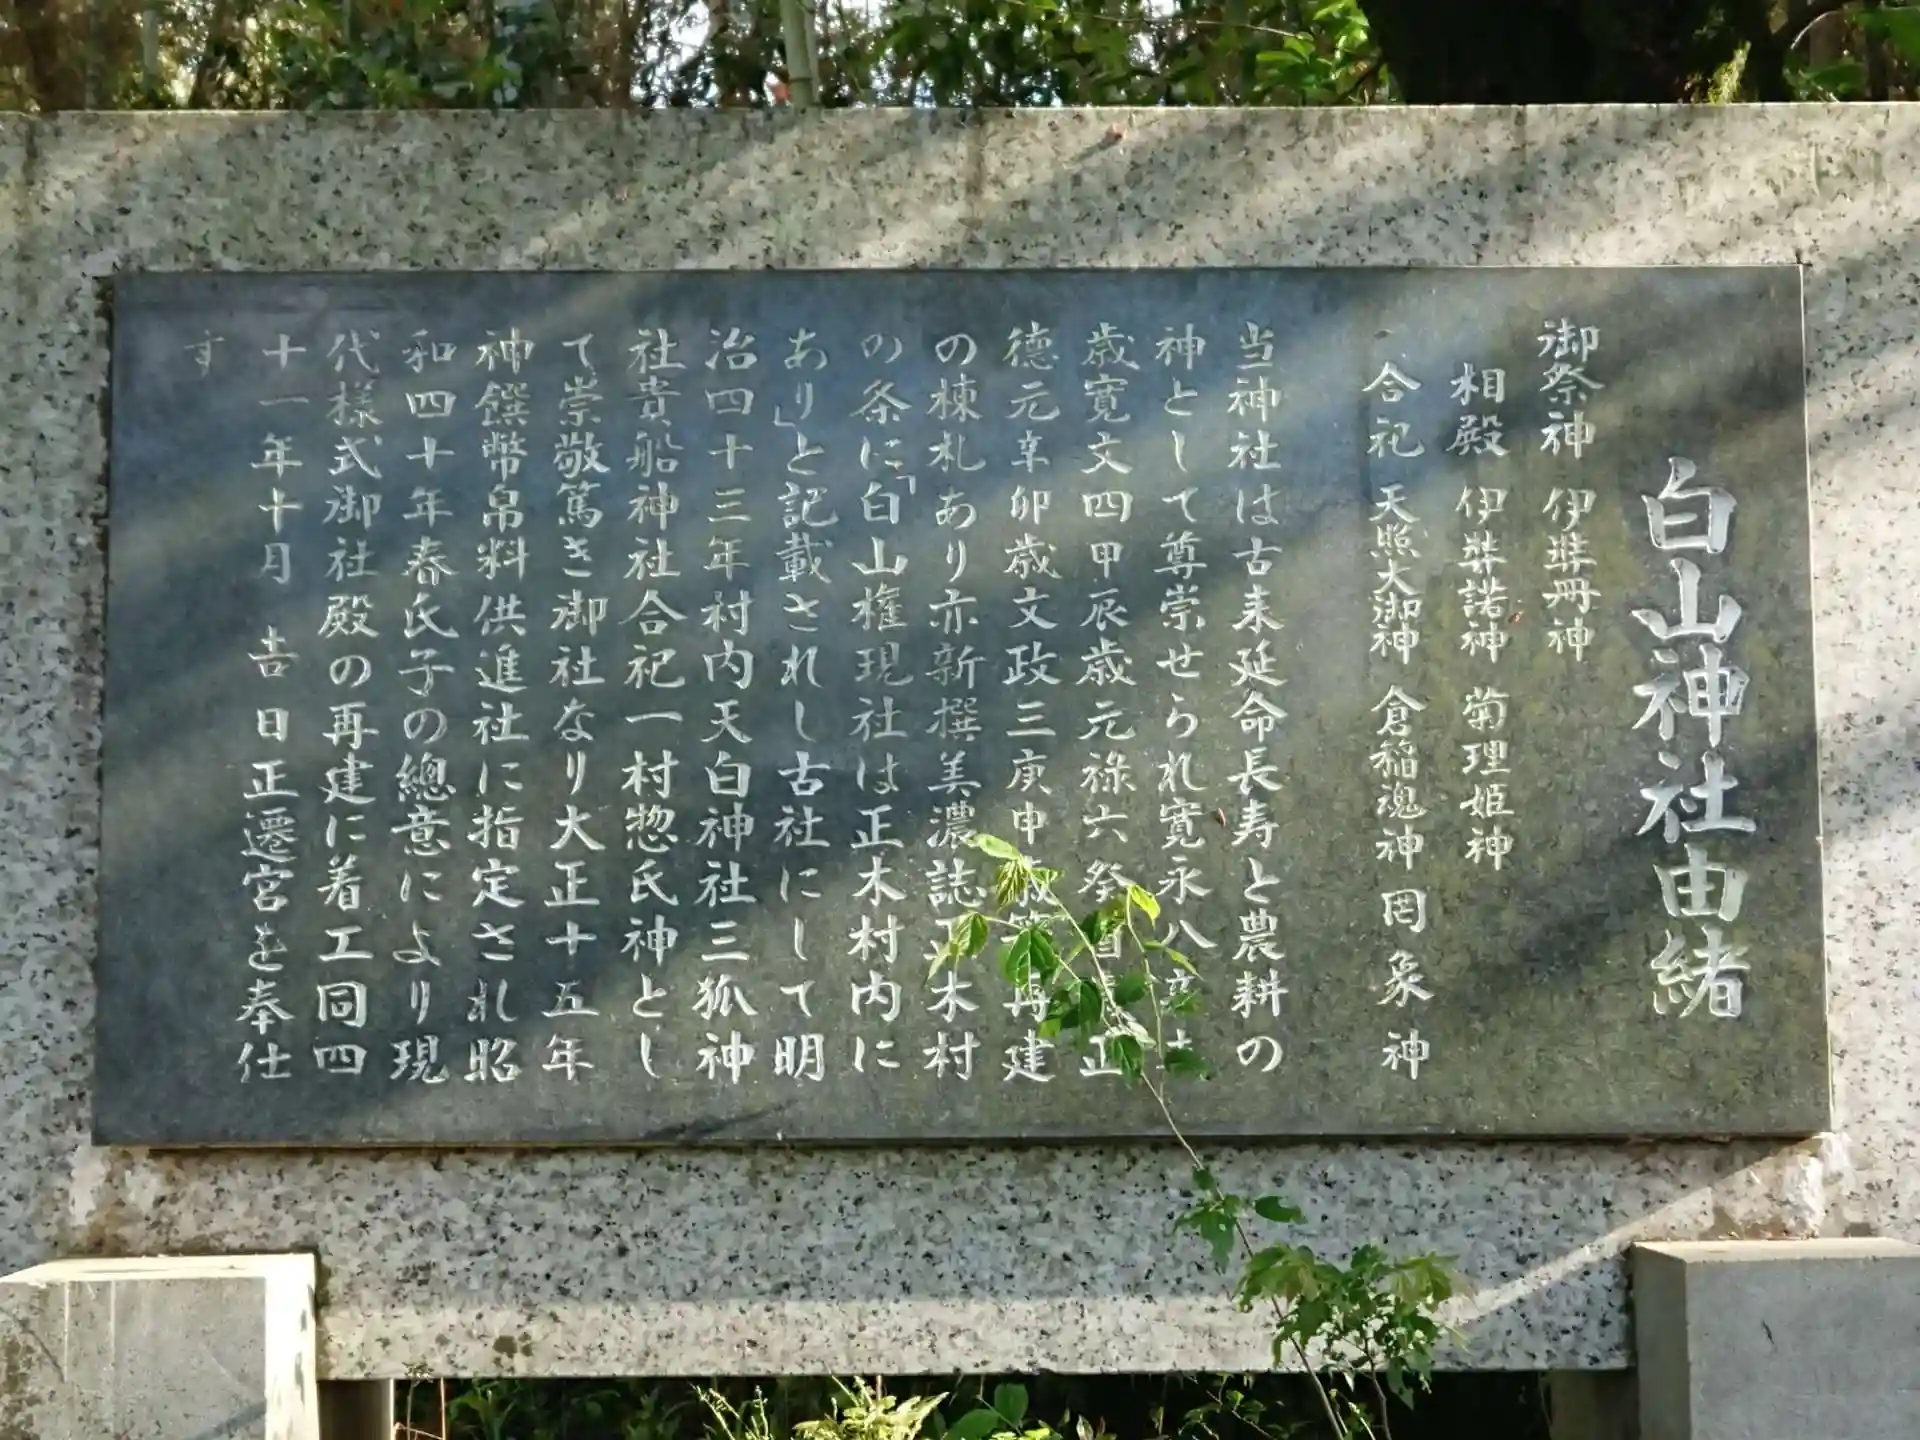 白山神社由緒
御祭神 伊弉冊神
相殿 伊弉諾神 菊理姫神
合祀 天照大御神 倉稲魂神 罔象神
当神社は古来延命長寿と農耕の
神として尊崇せられ寛永八辛
歳寛文四甲辰歳元禄六癸酉 正
徳元辛卯歳文政三庚申歳等 再建
の棟札あり亦新撰美濃誌正木村
の条に「白山権現社は正木村内に
あり」と記載されし古社にして明
治四十三年村内天白神社三狐神
社貴船神社合祀一村惣氏神とし
て崇敬篤き御社なり大正十五年
神饌幣帛料供進社に指定され昭
和四十年春氏子の總意により現
代様式御社殿の再建に着工同四
十一年十月 吉日正遷宮を奉仕
す